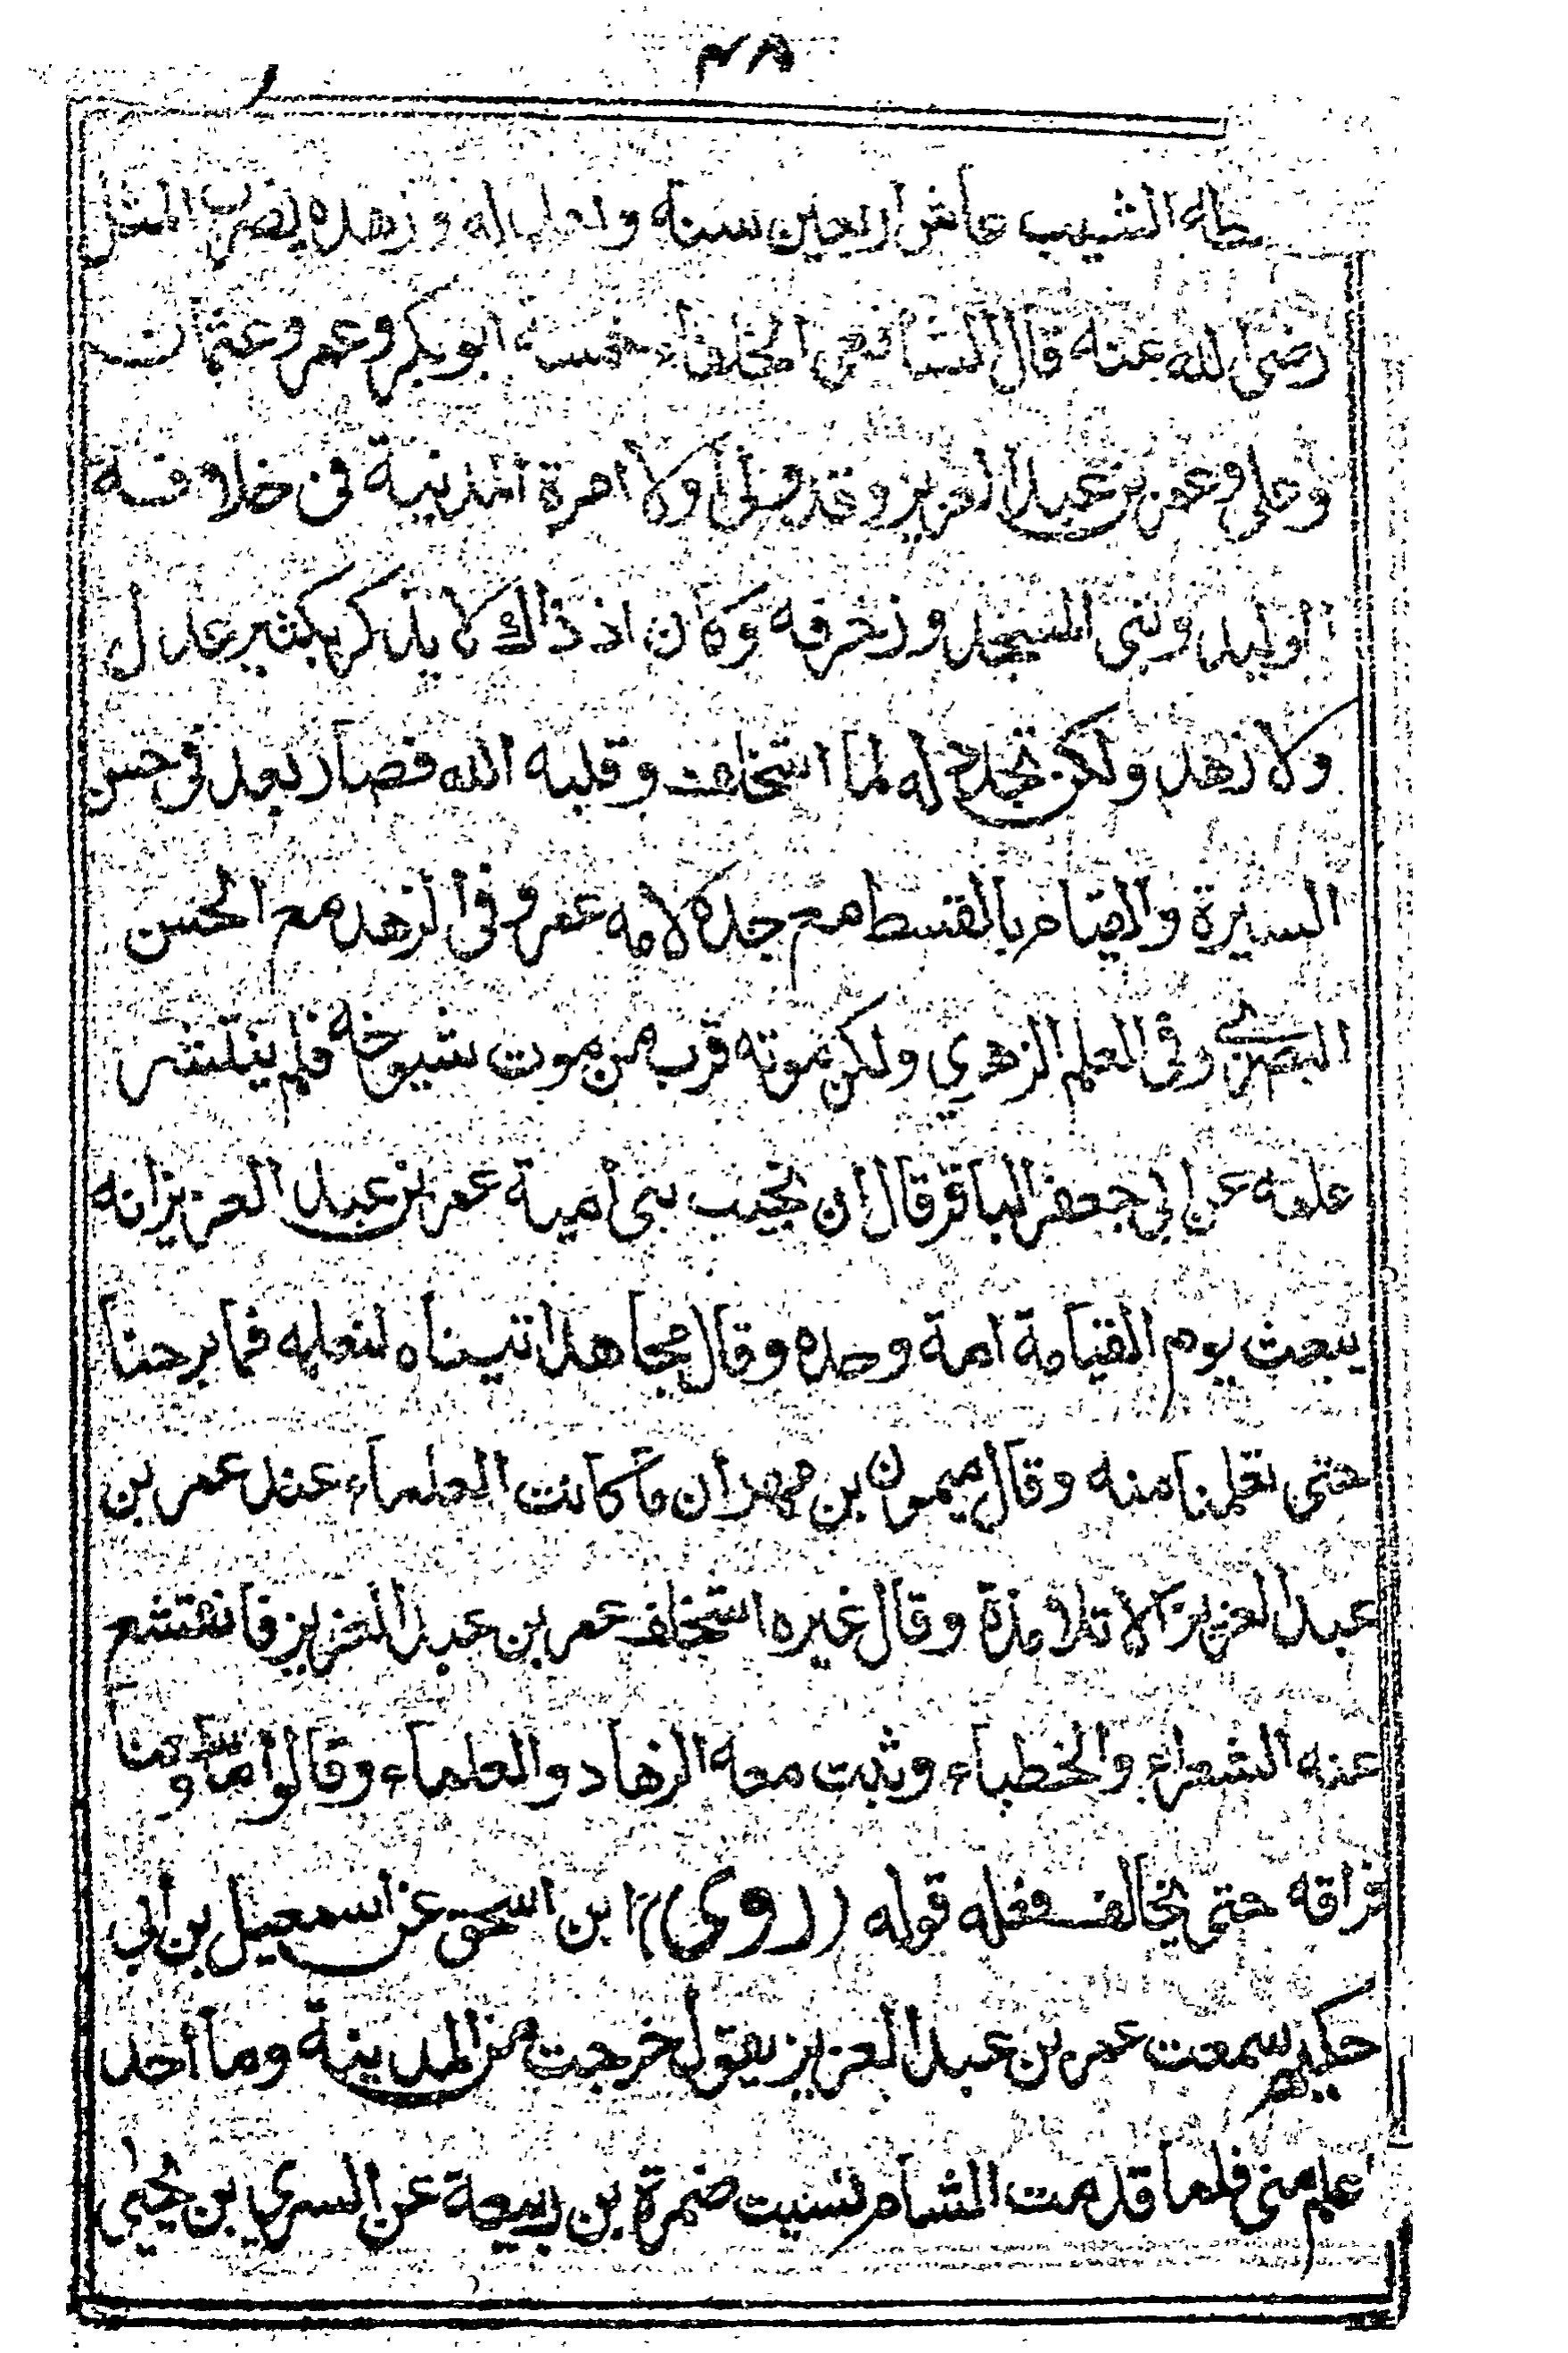 ٤٨
خطه الشيب عاش اربعين سنة وبعدله وزهده يضرب المثل
رضى الله عنه قال الشافعى الخلفاء خمسة ابو بكر وعمر وعثمان
وعلى وعمر بن عبد العزيز وقد ولى اولا امرة المدينة فى خلافة
الوليد وبنى المسجد وزخرفه وكان اذ ذاك لا يذكر بكثير عدل
ولا زهد ولكن تجدد له لما استخلف وقلبه الله فصار يعد فى حسن
السيرة والقيام بالقسط مع جده لامه عمر وفى الزهد مع الحسن
البصرى وفى العلم الزهري ولكن موته قرب من موت شيوخه فلم ينتشر
علمه عن ابي جعفر الباقر قال ان نجيب بنى أمية عمر بن عبد العزيز انه
يبعث يوم القيامة امة وحده وقال مجاهد اتيناه لنعلمه فما برحنا
حتى تعلمنا منه وقال ميمون بن مهران ما كانت العلماء عند عمر بن
عبد العزيز الا تلامذة وقال غيره استخلف عمر بن عبد العزيز فانقشع
عنه الشعراء والخطباء وثبت معه الزهاد والعلماء وقالوا ما وسعنا
فراقه حتى يخالف فعله قوله (روى) ابن اسحق عن اسمعيل بن أبي
حكيم سمعت عمر بن عبد العزيز يقول خرجت من المدينة وما أحد
أعلم منى فلما قدمت الشام نسيت ضمرة بن ربيعة عن السري بن يحيى